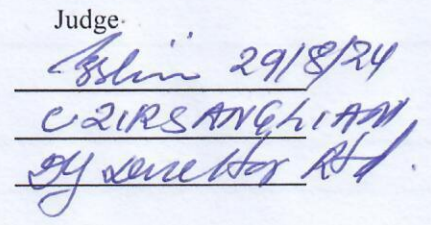 Judge
29/8/24
C ZIRSANGLIANA
Dy Director Rtd.